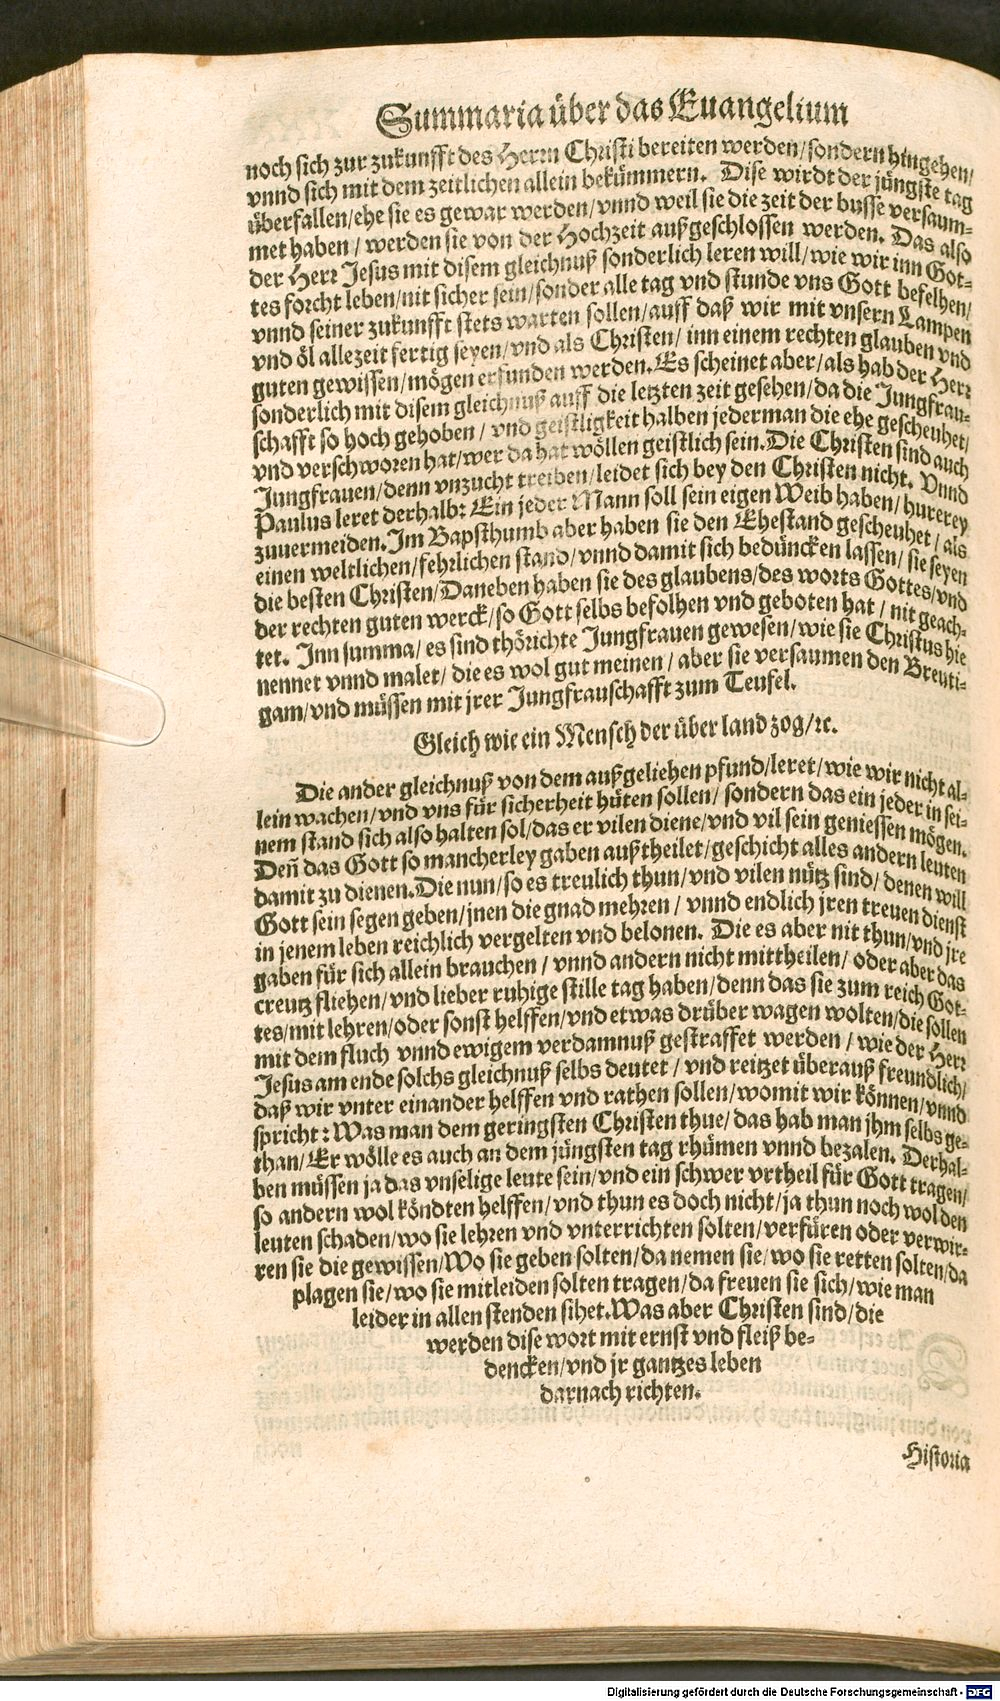 Summaria über das Euangelium
noch sich zur zukunfft des Herrn Christi bereiten werden/sondern hingehen/
vnnd sich mit dem zeitlichen allein bekümmern. Dise wirdt der jüngste tag
überfallen/ehe sie es gewar werden/vnnd weil sie die zeit der busse versaum-
met haben / werden sie von der Hochzeit außgeschlossen werden. Das also
der Herr Jesus mit disem gleichnuß sonderlich leren will/wie wir inn Got-
tes forcht leben/nit sicher sein/sonder alle tag vnd stunde vns Gott befelhen/
vnnd seiner zukunfft stets warten sollen/auff daß wir mit vnsern Lampen
vnd öl allezeit fertig seyen/vnd als Christen/ inn einem rechten glauben vnd
guten gewissen/mögen erfunden werden.Es scheinet aber/als hab der Herr
sonderlich mit disem gleichnuß auff die letzten zeit gesehen/da die Jungfrau-
schafft so hoch gehoben / vnd geistligkeit halben jederman die ehe gescheuhet/
vnd verschworen hat/wer da hat wöllen geistlich sein.Die Christen sind auch
Jungfrauen/denn vnzucht treiben/leidet sich bey den Christen nicht. Vnnd
Paulus leret derhalb: Ein jeder Mann soll sein eigen Weib haben/ hurerey
zuuermeiden.Im Bapsthumb aber haben sie den Ehestand gescheuhet / als
einen weltlichen/fehrlichen stand/vnnd damit sich bedüncken lassen/ sie seyen
die besten Christen/Daneben haben sie des glaubens/des worts Gottes/vnd
der rechten guten werck/so Gott selbs befolhen vnd geboten hat / nit geach-
tet. Inn summa/ es sind thörichte Jungfrauen gewesen/wie sie Christus hie
nennet vnnd malet/ die es wol gut meinen / aber sie versaumen den Breuti-
gam/vnd müssen mit jrer Jungfrauschafft zum Teufel.
Gleich wie ein Mensch der über land zog/ꝛc.
Die ander gleichnuß von dem außgeliehen pfund/leret/wie wir nicht al-
lein wachen/vnd vns für sicherheit hüten sollen/ sondern das ein jeder in sei-
nem stand sich also halten sol/das er vilen diene/vnd vil sein geniessen mögen.
Deñ das Gott so mancherley gaben außtheilet/geschicht alles andern leuten
damit zu dienen.Die nun/so es treulich thun/vnd vilen nütz sind/ denen will
Gott sein segen geben/jnen die gnad mehren / vnnd endlich jren treuen dienst
in jenem leben reichlich vergelten vnd belonen. Die es aber nit thun/vnd jre
gaben für sich allein brauchen / vnnd andern nicht mittheilen/ oder aber das
creutz fliehen/vnd lieber ruhige stille tag haben/denn das sie zum reich Got-
tes/mit lehren/oder sonst helffen/vnd etwas drüber wagen wolten/die sollen
mit dem fluch vnnd ewigem verdamnuß gestraffet werden / wie der Herr
Jesus am ende solchs gleichnuß selbs deutet / vnd reitzet überauß freundlich/
daß wir vnter einander helffen vnd rathen sollen/womit wir können/vnnd
spricht: Was man dem geringsten Christen thue/ das hab man jhm selbs ge-
than/ Er wölle es auch an dem jüngsten tag rhümen vnnd bezalen. Derhal-
ben müssen ja das vnselige leute sein/vnd ein schwer vrtheil für Gott tragen/
so andern wol köndten helffen/vnd thun es doch nicht/ja thun noch wol den
leuten schaden/wo sie lehren vnd vnterrichten solten/verfüren oder verwir-
ren sie die gewissen/Wo sie geben solten/da nemen sie/wo sie retten solten/da
plagen sie/wo sie mitleiden solten tragen/da freuen sie sich/wie man
leider in allen stenden sihet.Was aber Christen sind/die
werden dise wort mit ernst vnd fleiß be-
dencken/vnd jr gantzes leben
darnach richten.
Historia
Digitalisierung gefördert durch die Deutsche Forschungsgemeinschaft - DFG